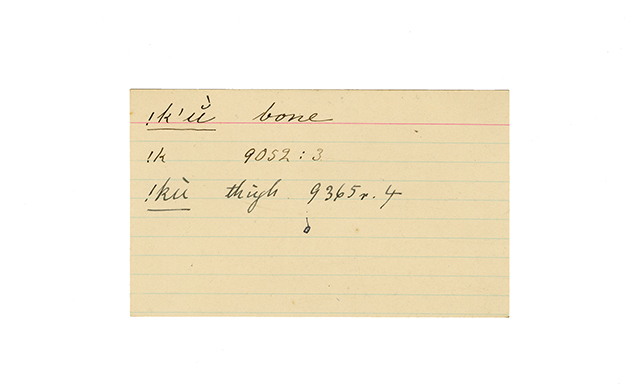 !k'ṵ̀ bone
!k 9052 : 3
!kù thigh 9365 r. 4